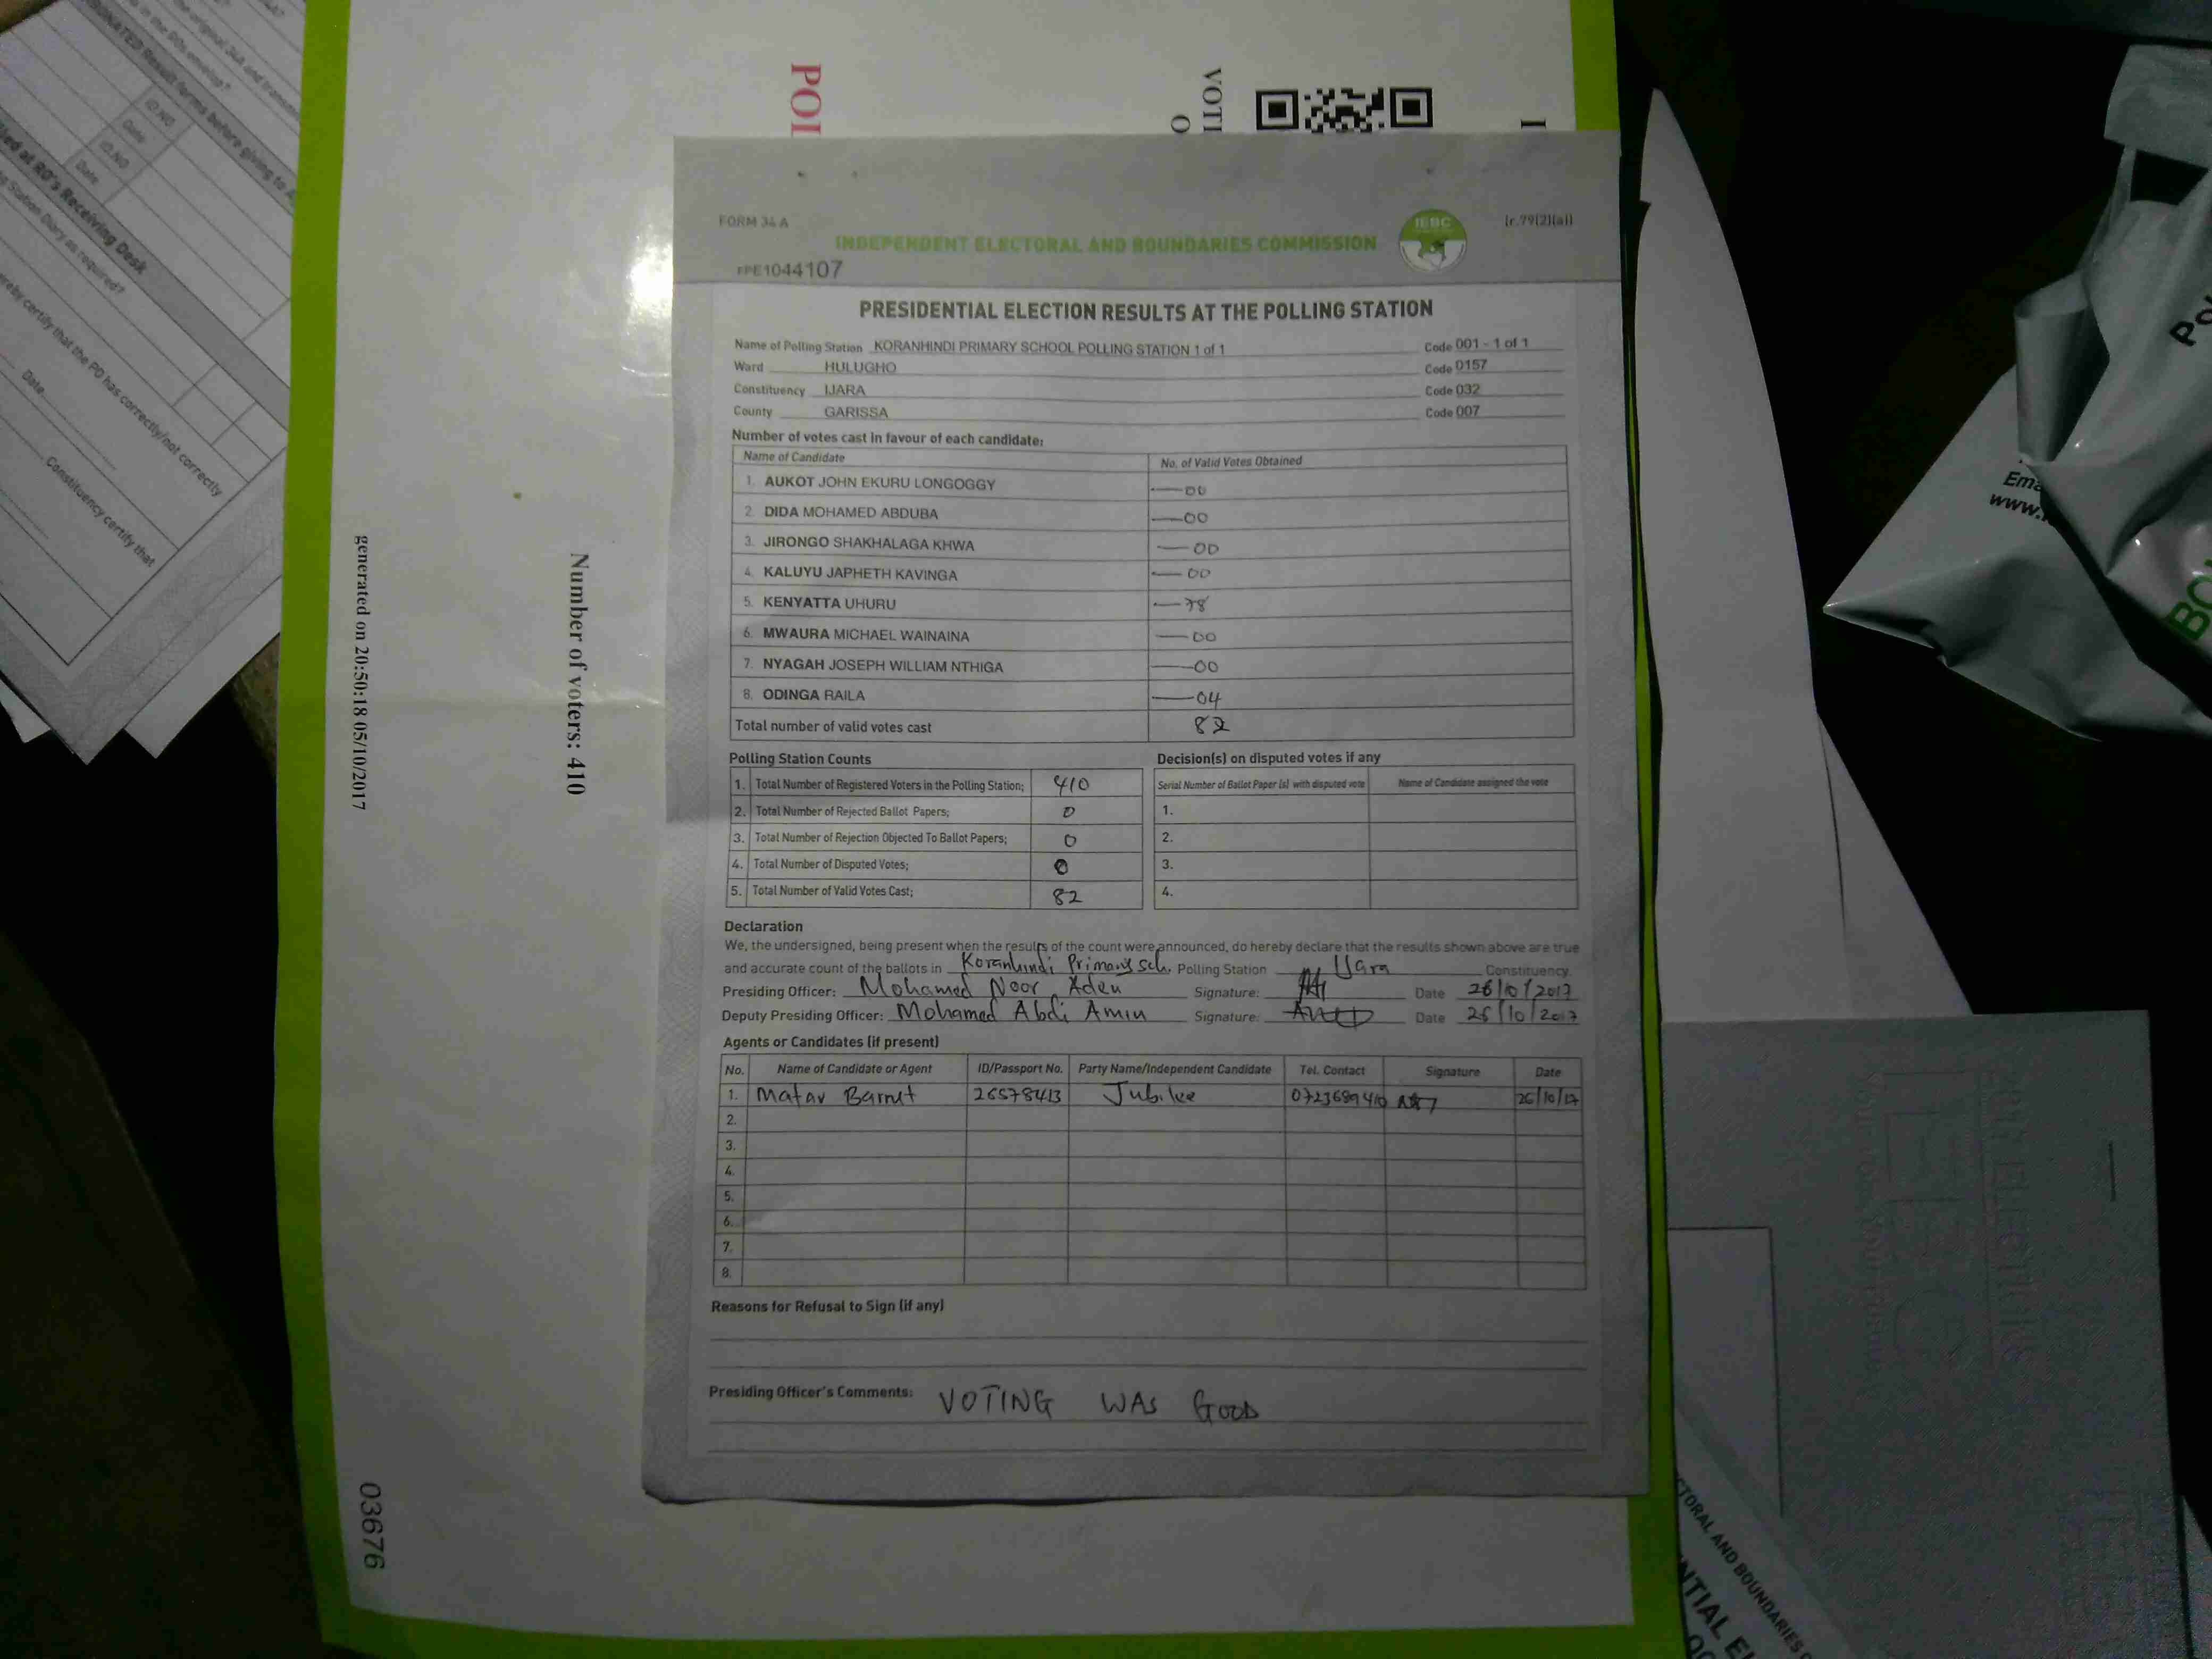 POI
VOTI
O
I
FORM 34 A
[r.79(2)(a)]
IEBC
INDEPENDENT ELECTORAL AND BOUNDARIES COMMISSION
PE1044107
PRESIDENTIAL ELECTION RESULTS AT THE POLLING STATION
Name of Polling Station KORANHINDI PRIMARY SCHOOL POLLING STATION 1 of 1 Code 001 - 1 of 1
Ward HULUGHO Code 0157
Constituency IJARA Code 032
County GARISSA Code 007
Number of votes cast in favour of each candidate:
Name of Candidate No. of Valid Votes Obtained
1. AUKOT JOHN EKURU LONGOGGY —00
2. DIDA MOHAMED ABDUBA —00
3. JIRONGO SHAKHALAGA KHWA —00
4. KALUYU JAPHETH KAVINGA —00
5. KENYATTA UHURU —78
6. MWAURA MICHAEL WAINAINA —00
7. NYAGAH JOSEPH WILLIAM NTHIGA —00
8. ODINGA RAILA —04
Total number of valid votes cast 82
Polling Station Counts
1. Total Number of Registered Voters in the Polling Station; 410
2. Total Number of Rejected Ballot Papers; 0
3. Total Number of Rejection Objected To Ballot Papers; 0
4. Total Number of Disputed Votes; 0
5. Total Number of Valid Votes Cast; 82
Decision(s) on disputed votes if any
Serial Number of Ballot Paper (s) with disputed vote Name of Candidate assigned the vote
1.
2.
3.
4.
Declaration
We, the undersigned, being present when the results of the count were announced, do hereby declare that the results shown above are true
and accurate count of the ballots in Koranhindi Primary sch. Polling Station Ijara Constituency.
Presiding Officer: Mohamed Noor Aden Signature: Date 26/10/2017
Deputy Presiding Officer: Mohamed Abdi Amin Signature: Date 26/10/2017
Agents or Candidates (if present)
No. Name of Candidate or Agent ID/Passport No. Party Name/Independent Candidate Tel. Contact Signature Date
1. Matav Barrut 26578413 Jubilee 0723689410 26/10/17
2.
3.
4.
5.
6.
7.
8.
Reasons for Refusal to Sign (if any)
Presiding Officer's Comments: VOTING WAS GOOD
Number of voters: 410
generated on 20:50:18 05/10/2017
03676
Result forms before giving to
at RO's Receiving Desk
Station Diary as required?
certify that the PO has correctly/not correctly
Date
Constituency certify that
ID.NO
Date
ID.NO
Date
Po
Ema
www.
BO
CTORAL AND BOUNDARIES
NTIAL EL